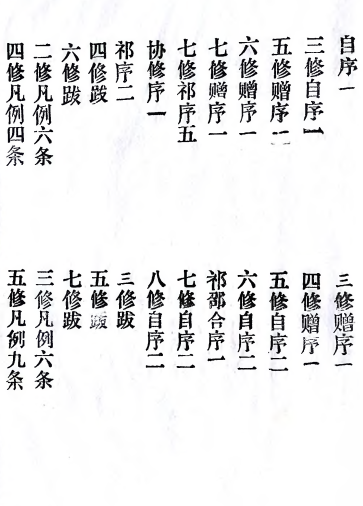 自序一
三修赠序一
三修自序一
四修赠序一
五修赠序二
五修自序二
六修赠序一
六修自序二
七修赠序一
祁邵合序一
七修祁序五
七修自序二
协修序一
八修自序二
祁序二
三修跋
四修跋
五修跋
六修跋
七修跋
二修凡例六条
三修凡例六条
四修凡例四条
五修凡例九条